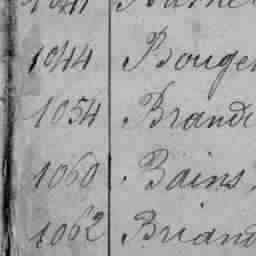 1044 Bouge
1054 Brand
1060 Bains,
1062 Briand